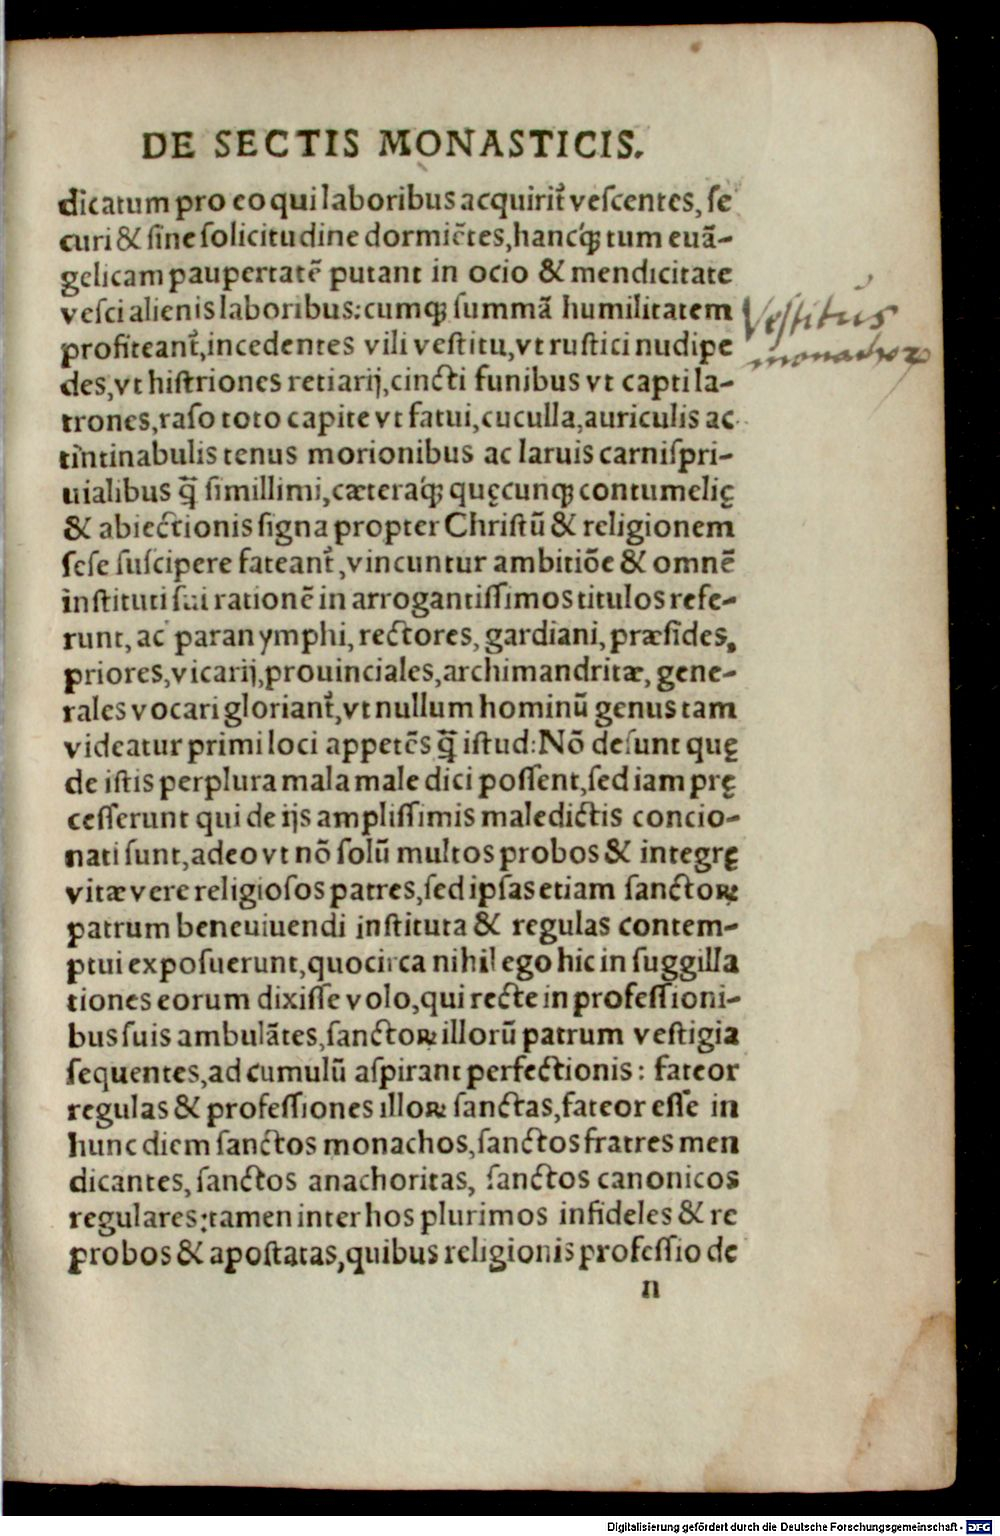 DE SECTIS MONASTICIS.
dicatum pro eo qui laboribus acquirit̃ veſcentes, ſe
curi & ſine ſolicitudine dormiẽtes, hancq́ꝫ tum euã-
gelicam paupertatẽ putant in ocio & mendicitate
veſci alienis laboribus: cumqꝫ ſummã humilitatem
profiteant̃, incedentes vili veſtitu, vt ruſtici nudipe
des, vt hiſtriones retiarij, cincti funibus vt capti la-
trones, raſo toto capite vt fatui, cuculla, auriculis ac
tintinabulis tenus morionibus ac laruis carniſpri-
uialibus q̃̃ſimillimi, cæteraq́ꝫ quęcunqꝫ contumelię
& abiectionis ſigna propter Chriſtũ & religionem
ſeſe ſuſcipere fateant̃, vincuntur ambitiõe & omnẽ
inſtituti ſui rationẽ in arrogantiſſimos titulos refe-
runt, ac paranymphi, rectores, gardiani, præſides,
priores, vicarij, prouinciales, archimandritæ, gene-
rales vocari gloriant̃, vt nullum hominũ genus tam
videatur primi loci appetẽs q̃ iſtud: Nõ deſunt quę
de iſtis perplura mala male dici poſſent, ſed iam prę
ceſſerunt qui de ijs ampliſſimis maledictis concio-
nati ſunt, adeo vt nõ ſolũ multos probos & integrę
vitæ vere religioſos patres, ſed ipſas etiam ſanctoꝝ
patrum beneuiuendi inſtituta & regulas contem-
ptui expoſuerunt, quocirca nihil ego hic in ſuggilla
tiones eorum dixiſſe volo, qui recte in profeſſioni-
bus ſuis ambulãtes, ſanctoꝝ illorũ patrum veſtigia
ſequentes, ad cumulũ aſpirant perfectionis: fateor
regulas & profeſſiones illoꝝ ſanctas, fateor eſſe in
hunc diem ſanctos monachos, ſanctos fratres men
dicantes, ſanctos anachoritas, ſanctos canonicos
regulares: tamen inter hos plurimos infideles & re
probos & apoſtatas, quibus religionis profeſſio de
n
Veſtitus
monachoꝝ
Digitalisierung gefördert durch die Deutsche Forschungsgemeinschaft - DFG